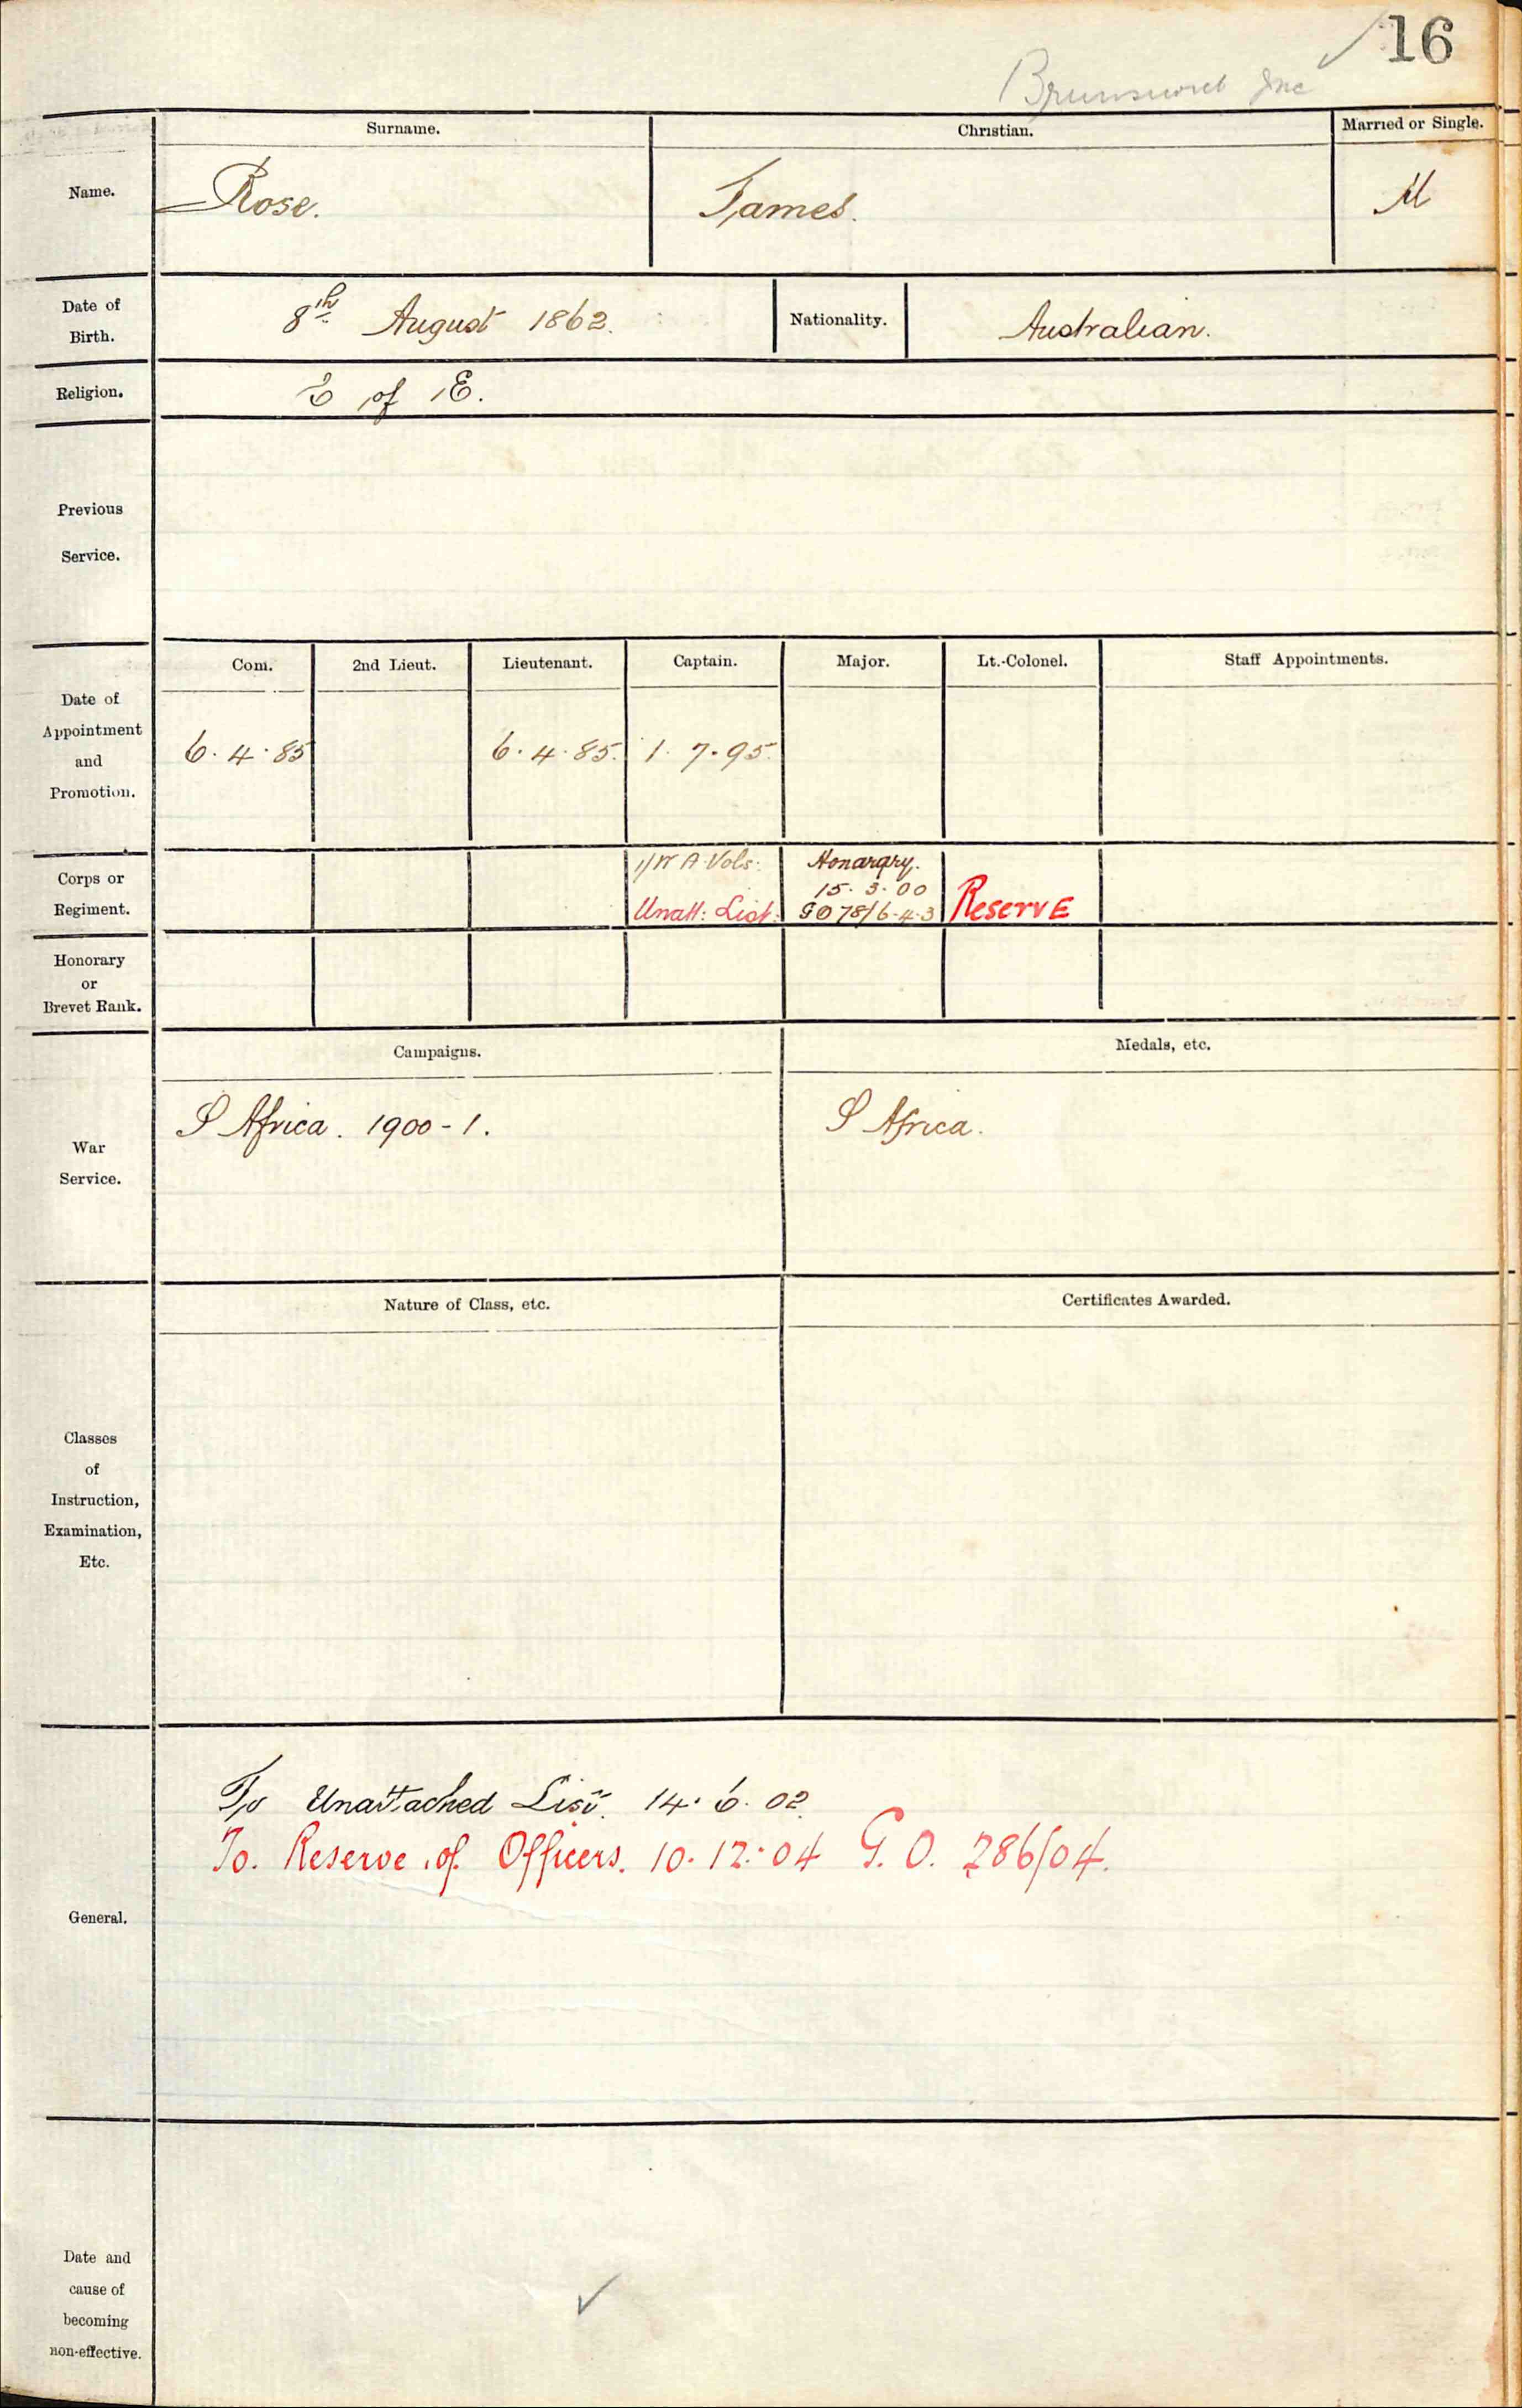 16
Brunswick Jnc
Surname. Christian. Married or Single.
Name. Rose. James. M
Date of Birth. 8th August 1862. Nationality. Australian.
Religion. C of E.
Previous Service.
Com. 2nd Lieut. Lieutenant. Captain. Major. Lt.-Colonel. Staff Appointments.
Date of Appointment and Promotion. 6.4.85 6.4.85. 1.7.95.
Corps or Regiment. 1/W A Vols. Honarary.
15.3.00
Unatt: List. GO 78/6.4.3 Reserve
Honorary or Brevet Rank.
Campaigns. Medals, etc.
War Service. S Africa. 1900-1. S Africa.
Nature of Class, etc. Certificates Awarded.
Classes of Instruction, Examination, Etc.
To Unattached List. 14.6.02.
To. Reserve of Officers. 10.12.04 G.O. 286/04.
General.
Date and cause of becoming non-effective.